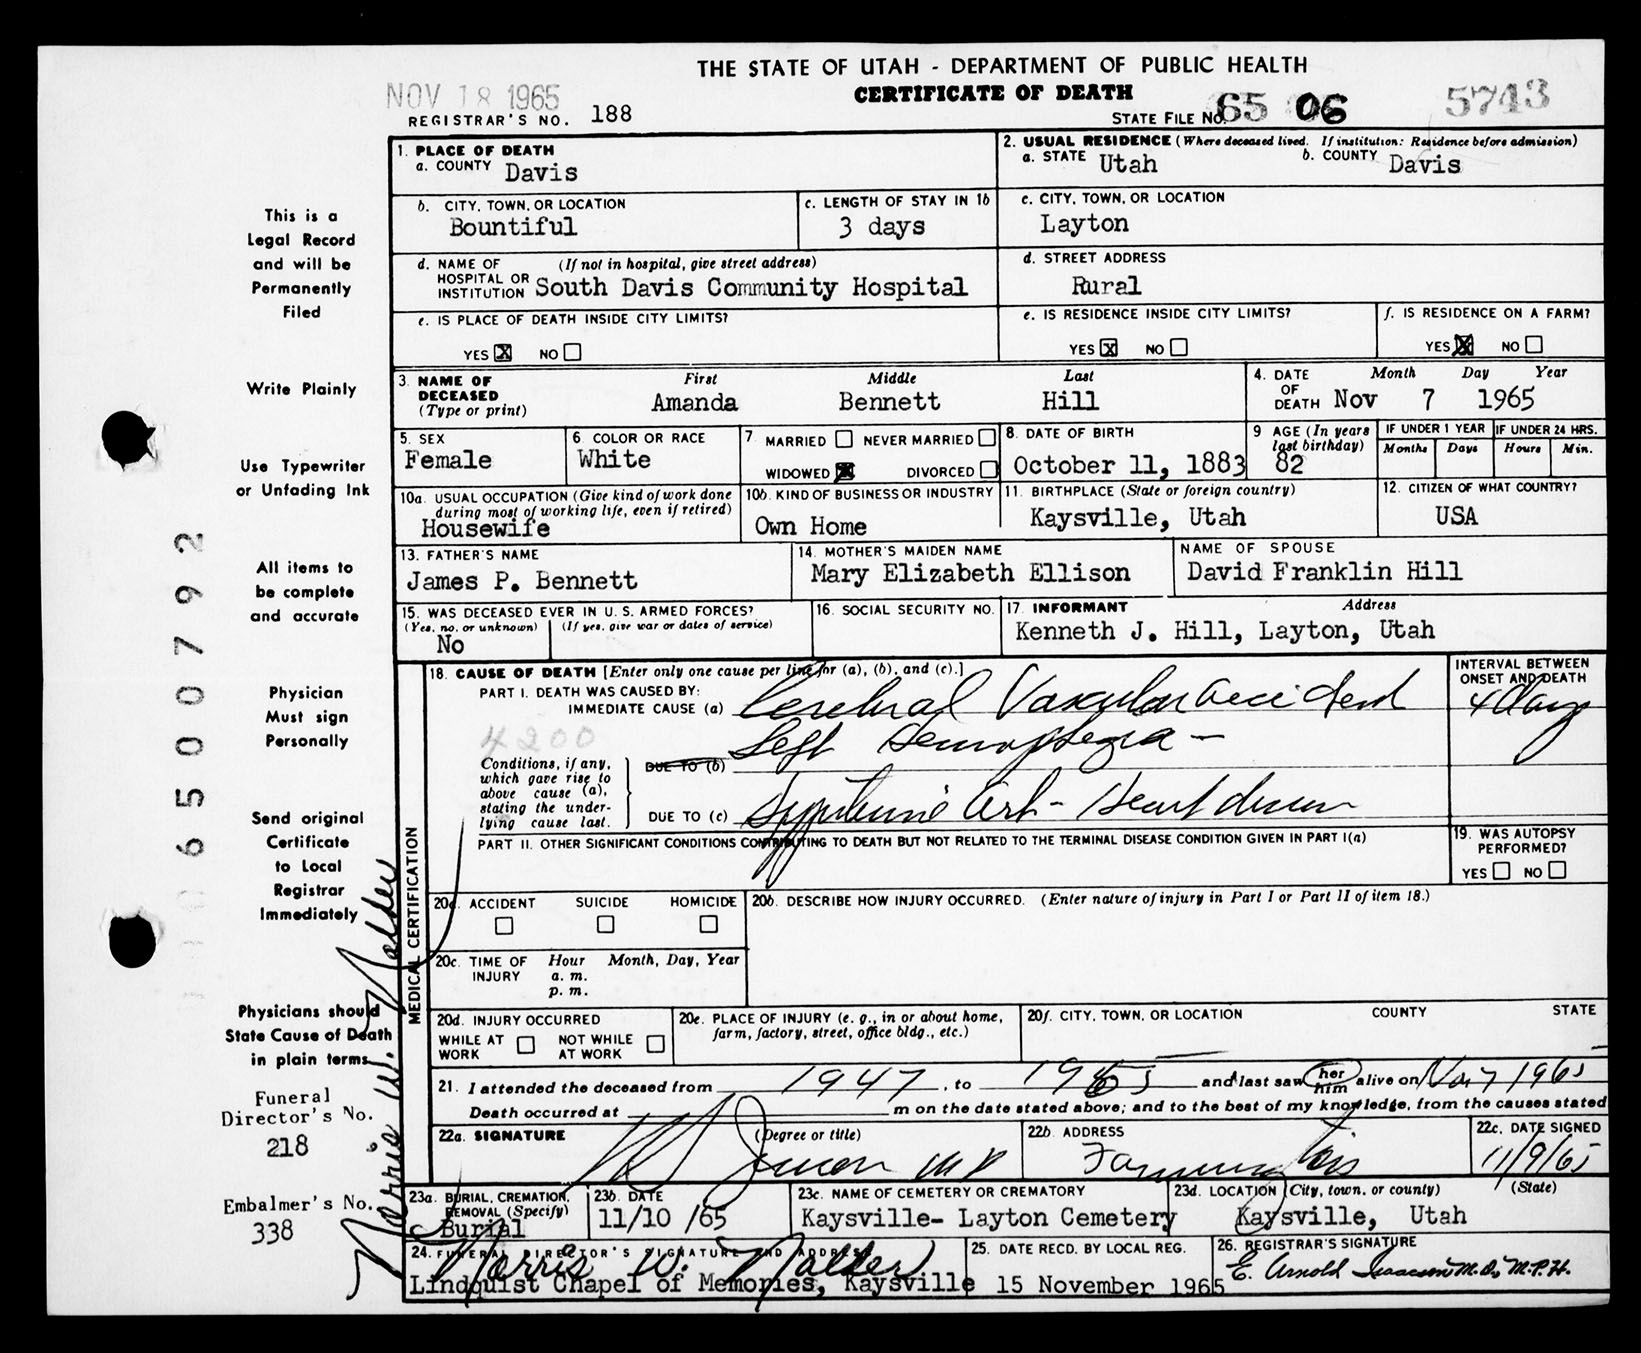 THE STATE OF UTAH - DEPARTMENT OF PUBLIC HEALTH
CERTIFICATE OF DEATH
NOV 18 1965
REGISTRAR'S NO. 188
STATE FILE NO. 65 06 5743
1. PLACE OF DEATH
a. COUNTY Davis
2. USUAL RESIDENCE (Where deceased lived. If institution: Residence before admission)
a. STATE Utah b. COUNTY Davis
b. CITY, TOWN, OR LOCATION
Bountiful
c. LENGTH OF STAY IN 1b
3 days
c. CITY, TOWN, OR LOCATION
Layton
d. NAME OF HOSPITAL OR INSTITUTION (If not in hospital, give street address)
South Davis Community Hospital
d. STREET ADDRESS
Rural
e. IS PLACE OF DEATH INSIDE CITY LIMITS?
YES X NO
e. IS RESIDENCE INSIDE CITY LIMITS?
YES X NO
f. IS RESIDENCE ON A FARM?
YES X NO
3. NAME OF DECEASED (Type or print)
First Middle Last
Amanda Bennett Hill
4. DATE OF DEATH
Month Day Year
Nov 7 1965
5. SEX
Female
6. COLOR OR RACE
White
7. MARRIED NEVER MARRIED
WIDOWED X DIVORCED
8. DATE OF BIRTH
October 11, 1883
9 AGE (In years last birthday)
82
IF UNDER 1 YEAR
Months Days
IF UNDER 24 HRS.
Hours Min.
10a. USUAL OCCUPATION (Give kind of work done during most of working life, even if retired)
Housewife
10b. KIND OF BUSINESS OR INDUSTRY
Own Home
11. BIRTHPLACE (State or foreign country)
Kaysville, Utah
12. CITIZEN OF WHAT COUNTRY?
USA
13. FATHER'S NAME
James P. Bennett
14. MOTHER'S MAIDEN NAME
Mary Elizabeth Ellison
NAME OF SPOUSE
David Franklin Hill
15. WAS DECEASED EVER IN U. S. ARMED FORCES?
(Yes, no, or unknown) (If yes, give war or dates of service)
No
16. SOCIAL SECURITY NO.
17. INFORMANT Address
Kenneth J. Hill, Layton, Utah
MEDICAL CERTIFICATION
18. CAUSE OF DEATH [Enter only one cause per line for (a), (b), and (c).]
INTERVAL BETWEEN ONSET AND DEATH
PART I. DEATH WAS CAUSED BY:
IMMEDIATE CAUSE (a) Cerebral Vascular accident 4 days
4200
Left Hemiplegia -
Conditions, if any, which gave rise to above cause (a), stating the underlying cause last.
DUE TO (b)
DUE TO (c) Art- Heart disease
PART II. OTHER SIGNIFICANT CONDITIONS CONTRIBUTING TO DEATH BUT NOT RELATED TO THE TERMINAL DISEASE CONDITION GIVEN IN PART I(a)
19. WAS AUTOPSY PERFORMED?
YES NO
20a. ACCIDENT SUICIDE HOMICIDE
20b. DESCRIBE HOW INJURY OCCURRED. (Enter nature of injury in Part I or Part II of item 18.)
20c. TIME OF INJURY
Hour Month, Day, Year
a. m.
p. m.
20d. INJURY OCCURRED
WHILE AT WORK NOT WHILE AT WORK
20e. PLACE OF INJURY (e. g., in or about home, farm, factory, street, office bldg., etc.)
20f. CITY, TOWN, OR LOCATION COUNTY STATE
21. I attended the deceased from 1947, to 1965 and last saw her him alive on Nov 7 1965
Death occurred at m on the date stated above; and to the best of my knowledge, from the causes stated
22a. SIGNATURE (Degree or title)
MD
22b. ADDRESS
Farmington
22c. DATE SIGNED
11/9/65
23a. BURIAL, CREMATION, REMOVAL (Specify)
Burial
23b. DATE
11/10 /65
23c. NAME OF CEMETERY OR CREMATORY
Kaysville- Layton Cemetery
23d. LOCATION (City, town, or county) (State)
Kaysville, Utah
24. FUNERAL DIRECTOR'S SIGNATURE AND ADDRESS
Norris W. Nalder
Lindquist Chapel of Memories, Kaysville
25. DATE RECD. BY LOCAL REG.
15 November 1965
26. REGISTRAR'S SIGNATURE
E. Arnold Isaacson M.D., M.P.H.
This is a
Legal Record
and will be
Permanently
Filed
Write Plainly
Use Typewriter
or Unfading Ink
All items to
be complete
and accurate
Physician
Must sign
Personally
Send original
Certificate
to Local
Registrar
Immediately
Physicians should
State Cause of Death
in plain terms
Funeral
Director's No.
218
Embalmer's No.
338
Norris W. Nalder
006500792